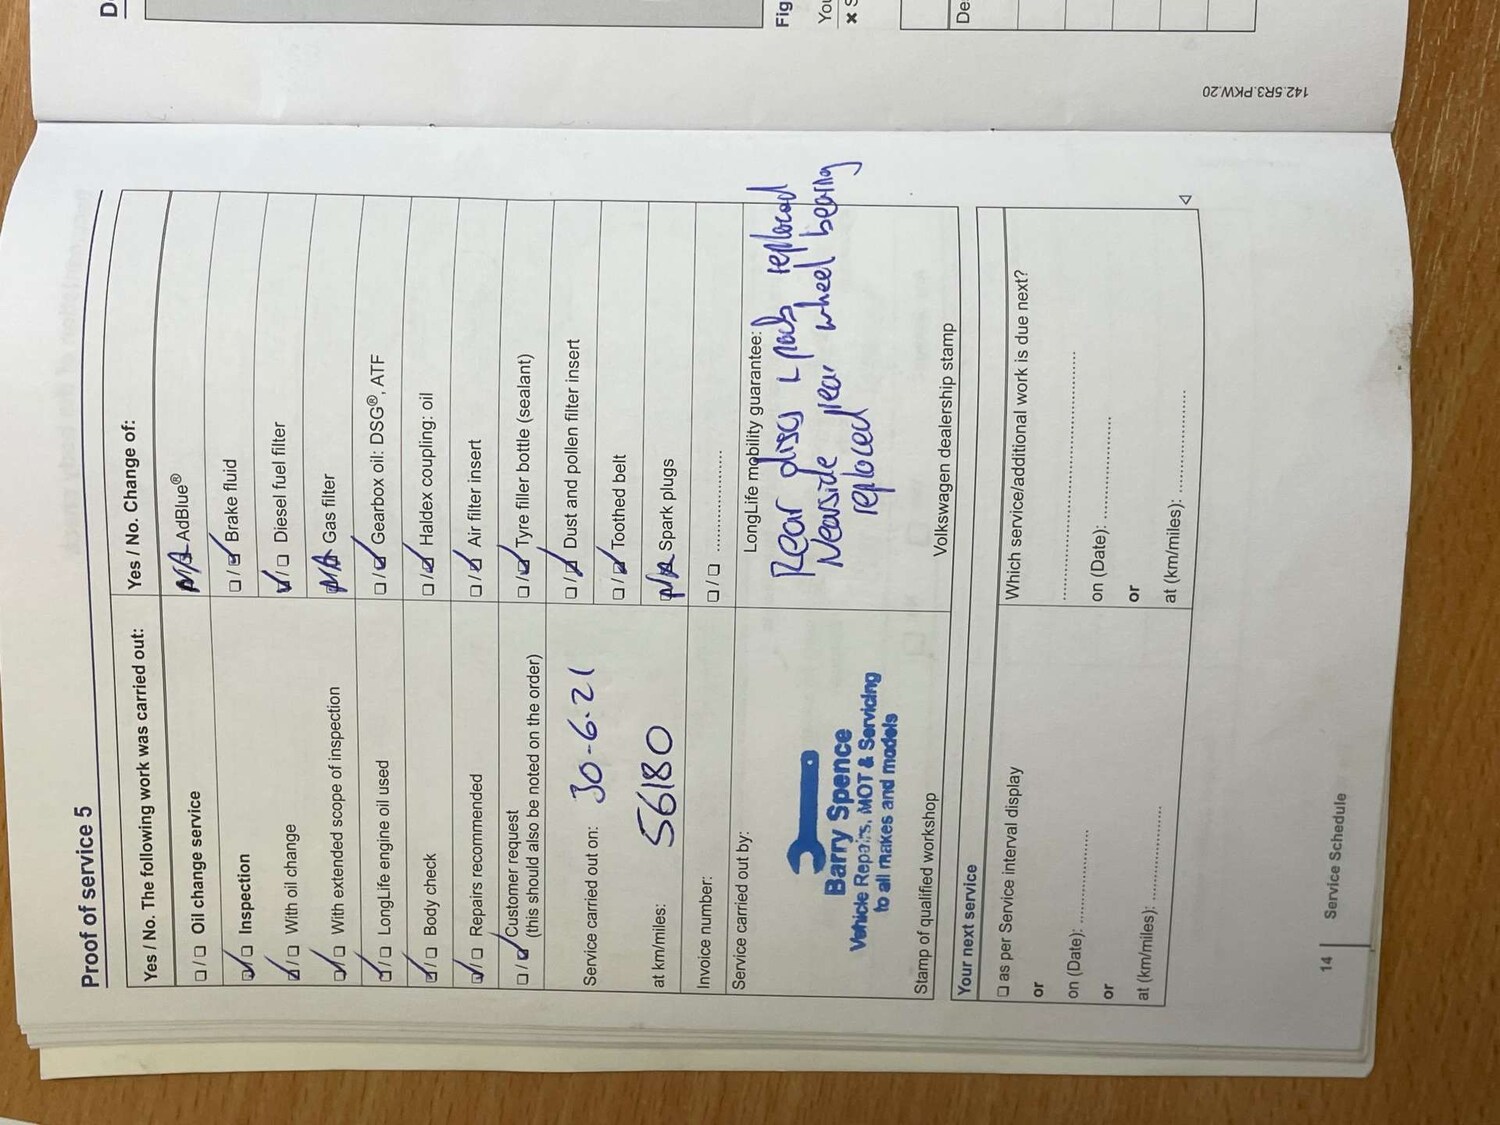 Proof of service 5
Yes / No. The following work was carried out:
Oil change service
Inspection
With oil change
With extended scope of inspection
LongLife engine oil used
Body check
Repairs recommended
Customer request
(this should also be noted on the order)
Service carried out on: 30-6-21
at km/miles: 56180
Invoice number:
Service carried out by:
Barry Spence
Vehicle Repairs, MOT & Servicing
to all makes and models
Stamp of qualified workshop
Yes / No. Change of:
N/A AdBlue®
Brake fluid
Diesel fuel filter
N/A Gas filter
Gearbox oil: DSG®, ATF
Haldex coupling: oil
Air filter insert
Tyre filler bottle (sealant)
Dust and pollen filter insert
Toothed belt
N/A Spark plugs
LongLife mobility guarantee:
Rear discs + pads replaced
Nearside rear wheel bearing
replaced
Volkswagen dealership stamp
Your next service
as per Service interval display
or
on (Date):
or
at (km/miles):
Which service/additional work is due next?
on (Date):
or
at (km/miles):
14
Service Schedule
142.5R3.PKW.20
Fig
You
De